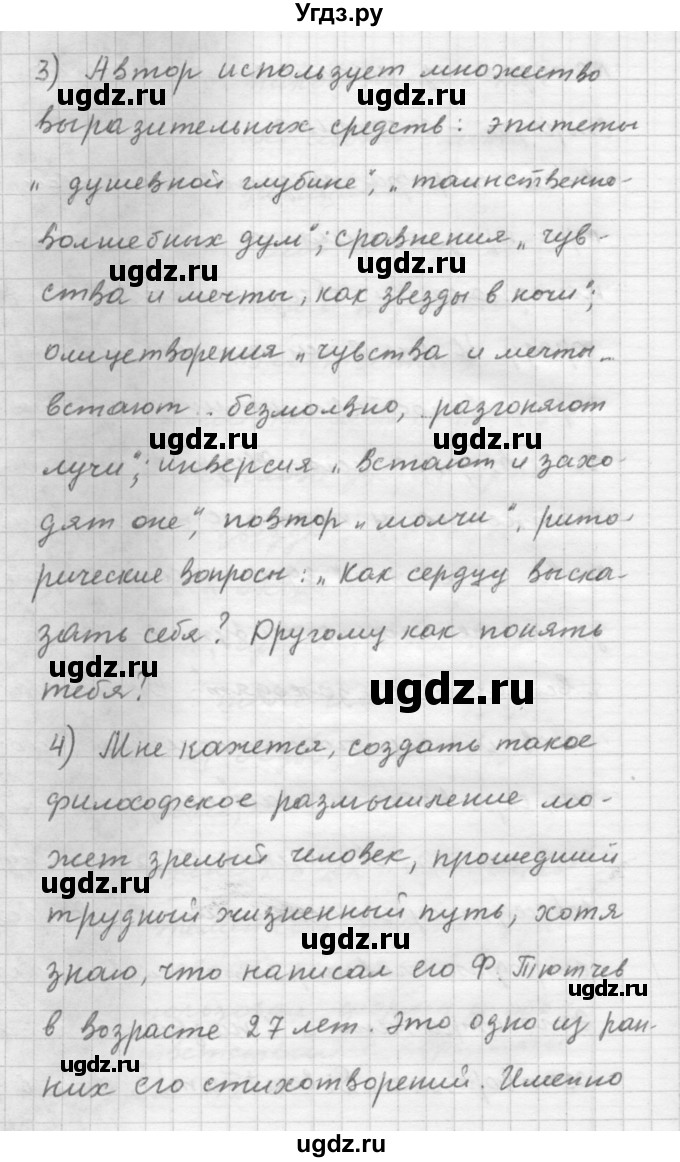 Угдз.ру
3) Автор использует множество
ugdz.ru ugdz.ru
выразительных средств: эпитеты
„душевной глубине", „таинственно-
волшебных дум"; сравнения „чув-
ugdz.ru
ства и мечты, как звезды в ночи";
олицетворения „чувства и мечты..
встают.. безмолвно, разгоняют
ugdz.ru ugdz.ru
лучи"; инверсия „встают и захо-
дят оне", повтор „молчи", рито-
ugdz.ru
рические вопросы: „Как сердцу выска-
зать себя? Другому как понять
ugdz.ru ugdz.ru
тебя?
4) Мне кажется, создать такое
философское размышление мо-
жет зрелый человек, прошедший
ugdz.ru
трудный жизненный путь, хотя
ugdz.ru
знаю, что написал его Ф. Тютчев
ugdz.ru
в возрасте 27 лет. Это одно из ран-
ugdz.ru
них его стихотворений. Именно
ugdz.ru